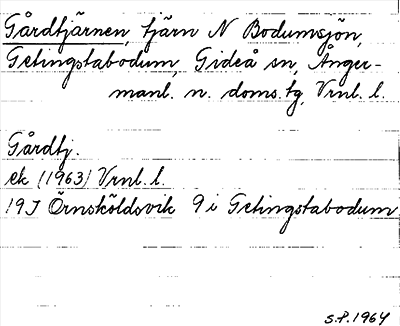 Gårdtjärnen, tjärn N Bodumsjön,
Getingstabodum, Gideå sn, Ånger-
manl. n. doms.tg, Vrnl. l.
Gårdtj.
ek (1963) Vrnl. l.
19J Örnsköldsvik 9 i Getingstabodum
S.P. 1964